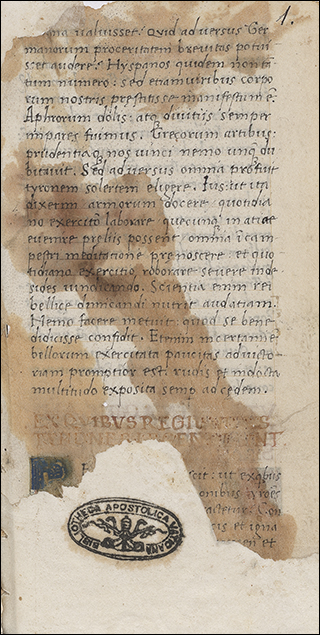 1.
ualuisset? Quid aduersus Ger
manorum proceritatem breuitas potuis
set audere? Hyspanos quidem non tā
tum numero: sed etiam uiribus corpo
rum nostris prestitisse manifestum ē.
Aphrorum dolis: atq; diuitijs semper
impares fuimus. Grecorum artibus:
prudentiaq; nos uinci nemo unq̄ du
bitauit. Sed aduersus omnia profuit
tyronem solertem eligere. Ius: ut
dixerim armorum docere quotidia
no exercitō laborare quecunq; in acie
euenire preliis possent omnia ī cam
pestri meditatione prenoscere et quo
tidiano exercitio, roborare seuere in de
sides uindicando. Scientia enim rei
bellice dimicandi nutrit audatiam.
Nemo facere metuit quod se bene
didicisse confidit. Etenim in certamine
bellorum exercitata paucitas ad uicto
riam promptior est: rudis et indocta
multitudo exposita semp ad cedem.
EX QVIBVS REGI
TYRONES
ut ex
tyrōes
Con
et igna
et
BIBLIOTHECA APOSTOLICA VATICANA